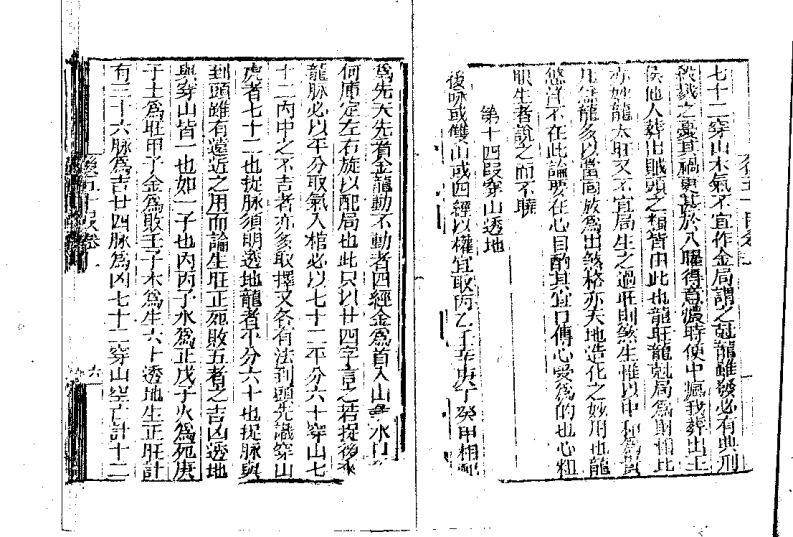 七十二穿山木氣不宜作金局謂之尅龍雖發必有典刑
之憂其禍更甚於八曜得意濃時便中瘋我葬出王
侯他人葬出賊頭之類皆由此也龍旺龍尅局為財相比
亦妙龍太旺又不宜局生之過旺則煞生惟以中和為
用無龍多以當面放為出煞格亦天地造化之妙用也龍
悠洋不在此論要在心目酌其宜口傳心受為的也心粗
眼生者說之而不曉
第十四段穿山透地
後咏或雙山或四經以權宜取丙乙子辛庚丁癸甲相配
為先天先看金龍動不動者四經金為首入山水口
何庫定左右旋以配局也此只以廿四字言之若捉後來
龍脉必以平分取氣入棺必以七十二平分六十穿山七
十二內中之不吉者亦多取擇又各有法到頭先識穿山
虎者七十二也捉脉須明透地龍者平分六十也捉脉與
到頭雖有遠近之用而論生旺正死敗五者之吉凶透地
與穿山皆一也如一子也內丙子水為正戊子火為死庚
子土為旺甲子金為敗壬子木為生六十透地生正旺計
有三十六脉為吉廿四脉為凶七十二穿山空亡計十二
六